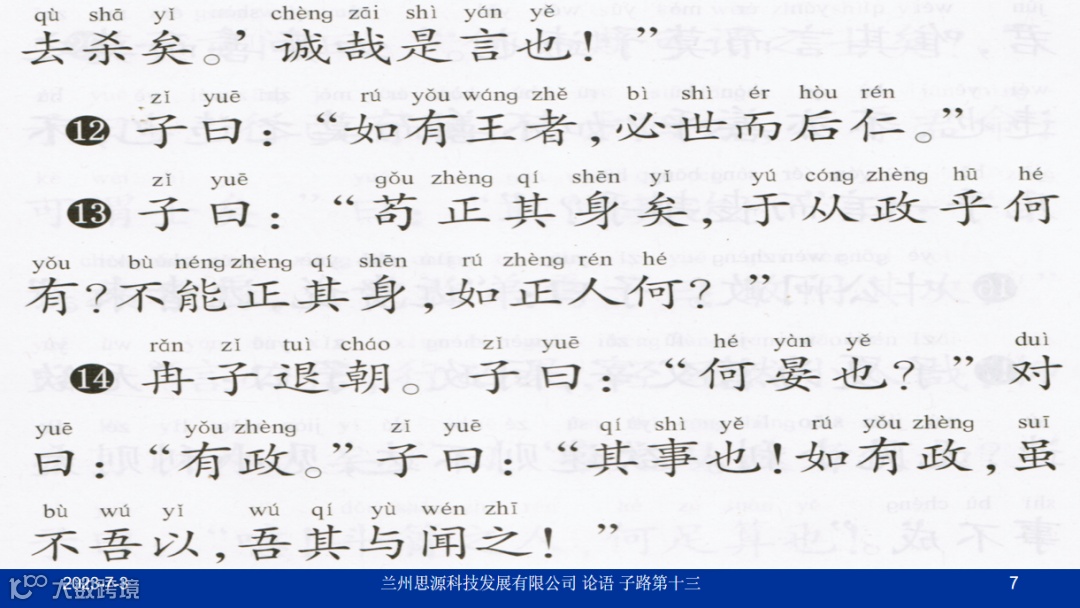 qù shā yǐ chéng zāi shì yán yě
去杀矣。’诚哉是言也！”
zǐ yuē rú yǒu wáng zhě bì shì ér hòu rén
12 子曰：“如有王者，必世而后仁。”
zǐ yuē gǒu zhèng qí shēn yǐ yú cóng zhèng hū hé
13 子曰：“苟正其身矣，于从政乎何
yǒu bù néng zhèng qí shēn rú zhèng rén hé
有？不能正其身，如正人何？”
rǎn zǐ tuì cháo zǐ yuē hé yàn yě duì
14 冉子退朝。子曰：“何晏也？”对
yuē yǒu zhèng zǐ yuē qí shì yě rú yǒu zhèng suī
曰：“有政。”子曰：“其事也！如有政，虽
bù wú yǐ wú qí yù wén zhī
不吾以，吾其与闻之！”
2023-7-3 兰州思源科技发展有限公司 论语 子路第十三 7
大数跨境